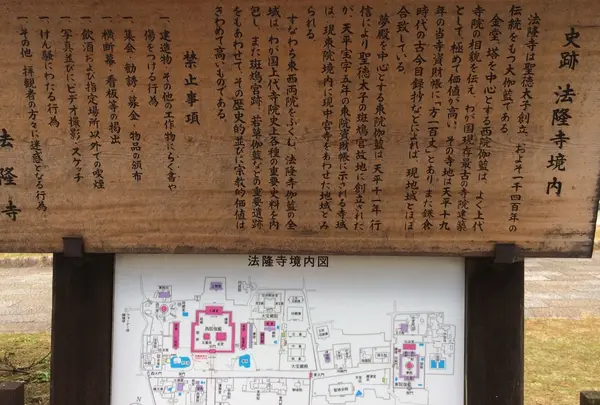 史跡 法隆寺境内
法隆寺は聖徳太子創立、およそ一千四百年の
伝統をもつ大伽藍である。
金堂、塔を中心とする西院伽藍は、よく上代
寺院の相貌を伝え、わが国現存最古の寺院建築
として、極めて価値が高い。その寺地は天平十九
年の当寺資財帳に「方一百丈」とあり、また鎌倉
時代の古今目録抄などによれば、現地域とほぼ
合致している。
夢殿を中心とする東院伽藍は、天平十一年行
信により聖徳太子の斑鳩宮故地に創立された
が、天平宝字五年の東院資財帳に示される寺域
は、現東院境内に現中宮寺をあわせた地域とみ
られる。
すなわち東西両院をふくむ、法隆寺伽藍の全
域は、わが国上代寺院史上各種の重要史料を内
包し、また斑鳩宮跡、若草伽藍などの重要遺跡
をもあわせて、その歴史的並びに宗教的価値は
きわめて高いものである。
禁止事項
一、建造物、その他の工作物にらく書や
傷をつける行為
一、集会、勧誘、募金、物品の頒布
一、横断幕、看板等の掲出
一、飲酒および指定場所以外での喫煙
一、写真並びにビデオ撮影、スケッチ
一、けん騒にわたる行為
一、その他、拝観者の方々に迷惑となる行為
法隆寺
法隆寺境内図
西院伽藍
大宝蔵殿
東院伽藍